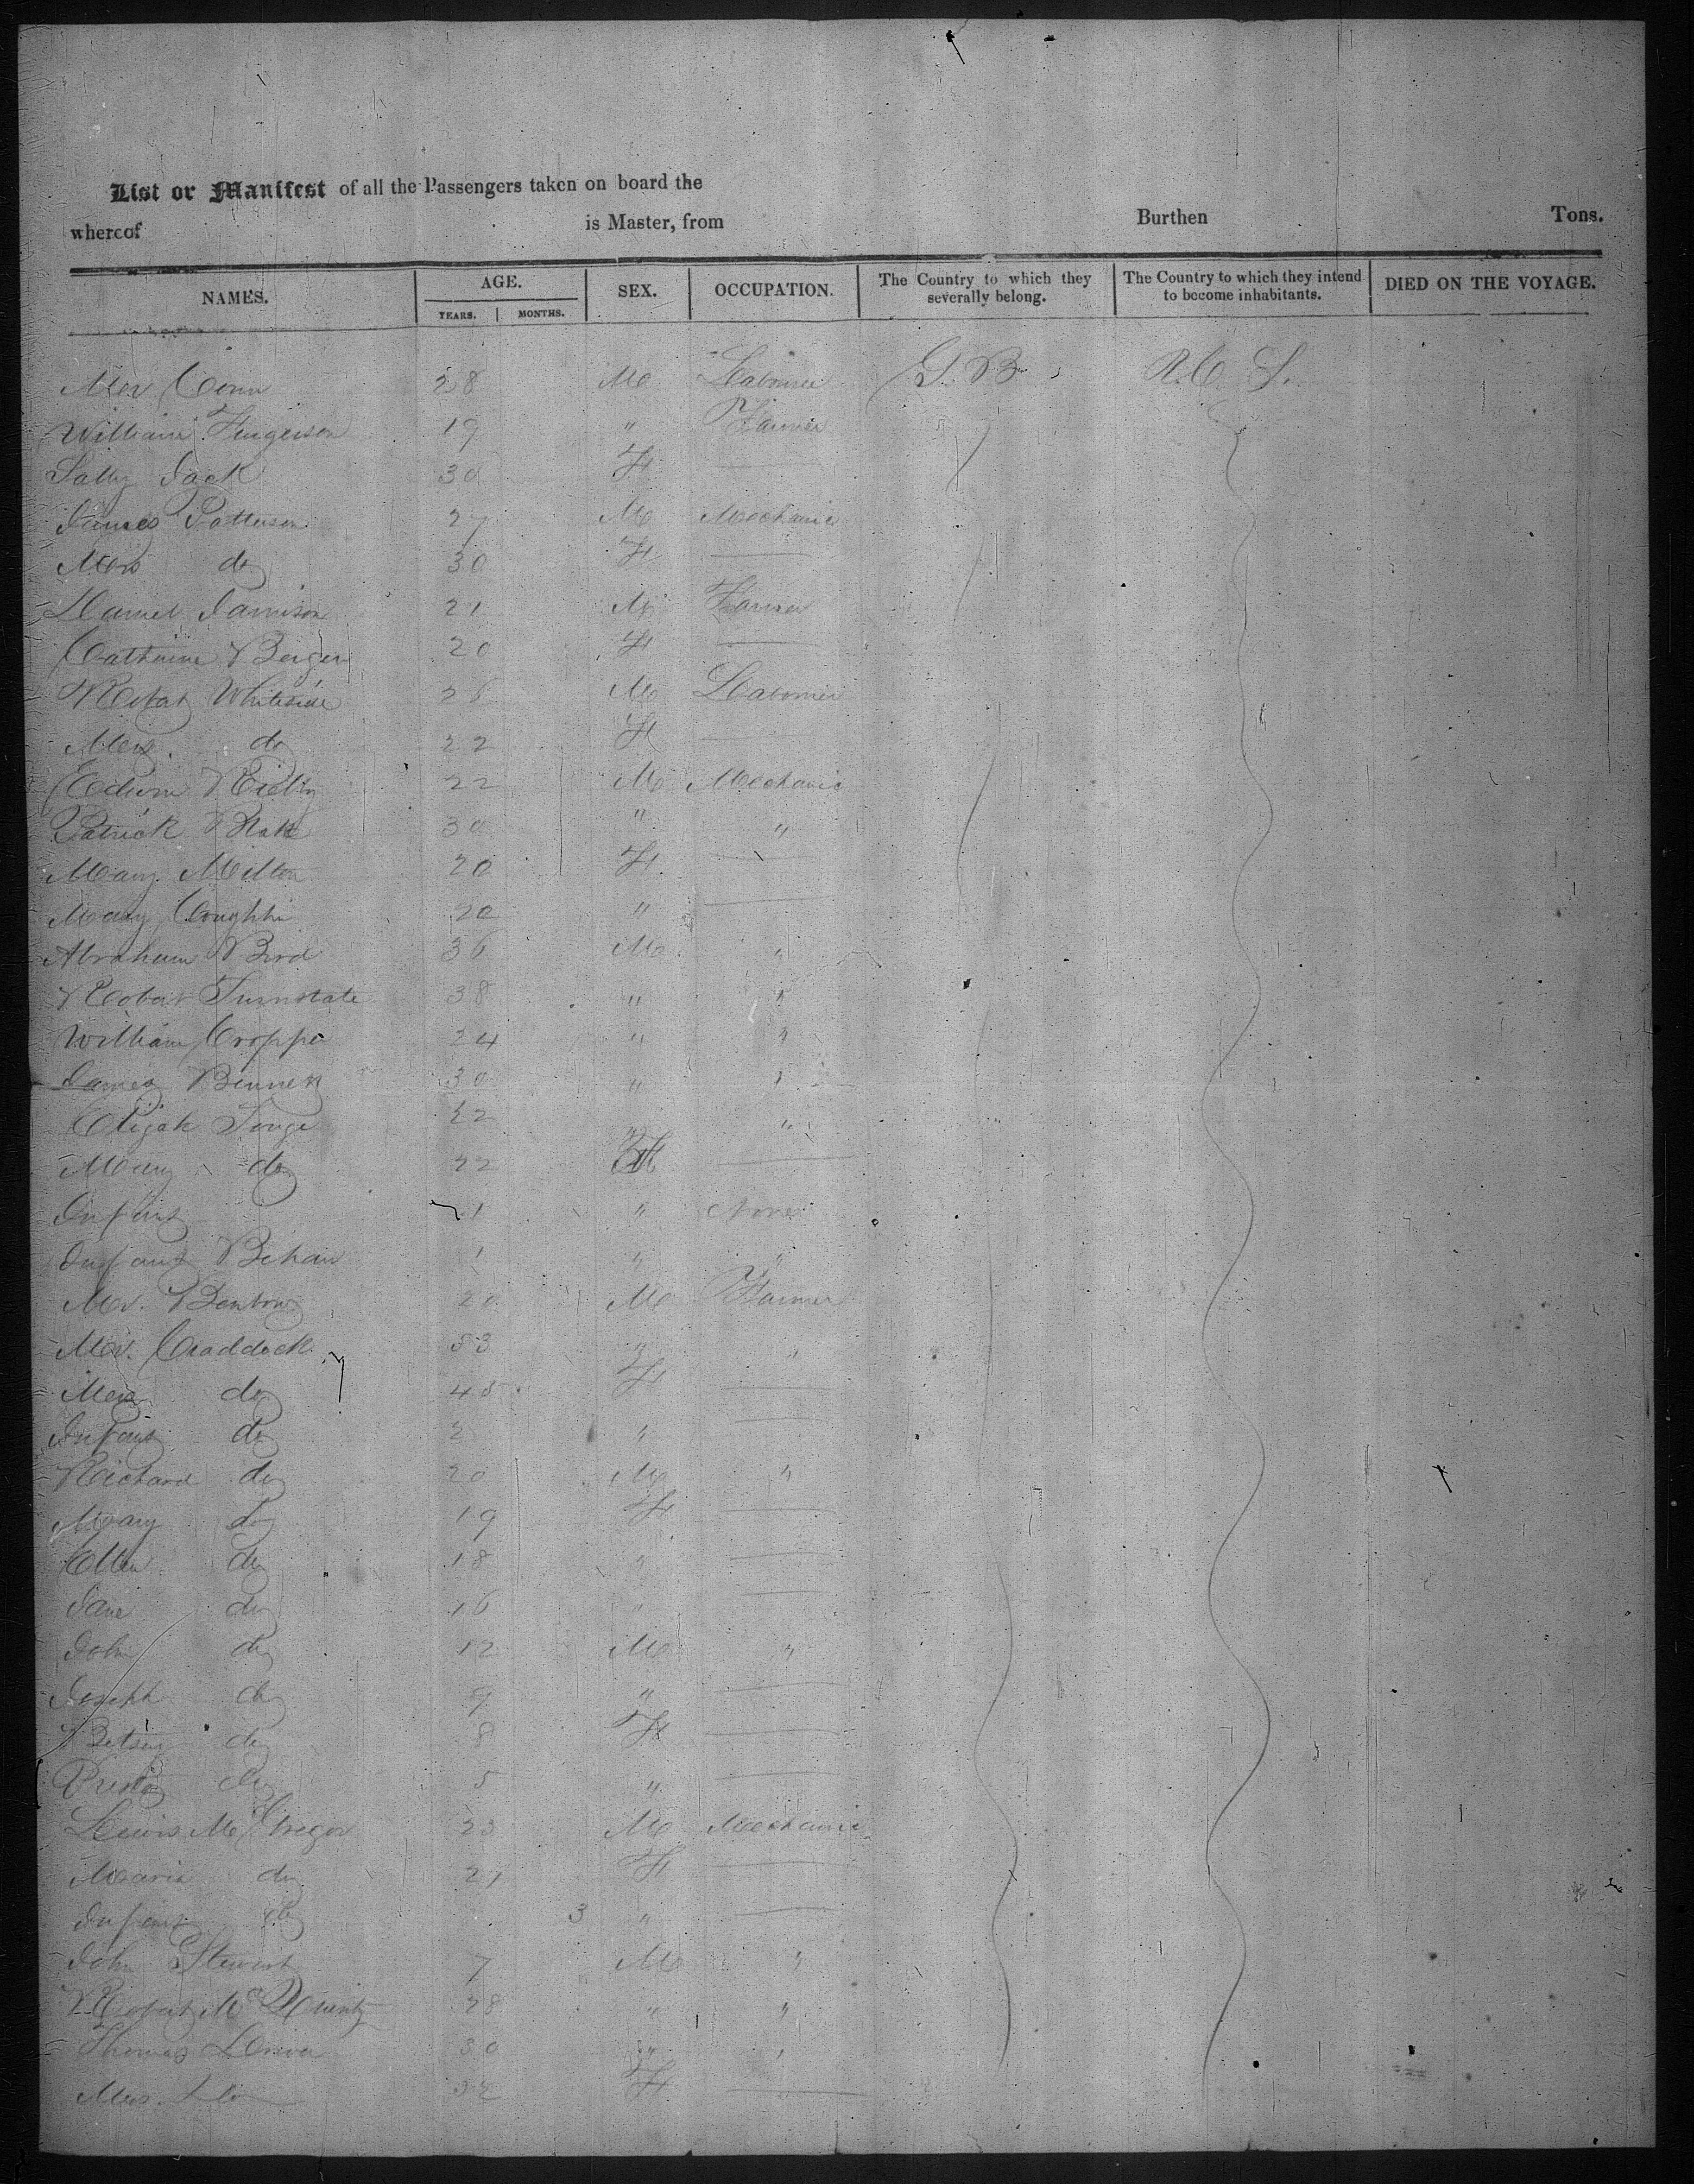 List or Manifest of all the Passengers taken on board the
whereof is Master, from Burthen Tons.
NAMES. AGE. SEX. OCCUPATION. The Country to which they severally belong. The Country to which they intend to become inhabitants. DIED ON THE VOYAGE.
YEARS. MONTHS.
Mr Conn 28 M Labourer G. B U. S.
William Furgerson 19 " Farmer
Sally Jack 30 F —
James Patterson 27 M Mechanic
Mrs do 30 F —
Daniel Jamison 21 M Farmer
Catherine Berger 20 F —
Robert Whiteside 26 M Labourer
Mrs. do 22 F —
Edwin 22 M Mechanic
Patrick 30 " "
Mary Milton 20 F —
Mary Coughlin 20 " —
Abraham Bird 36 M "
Robert Turnstate 38 " "
William Cropper 24 " "
James Bennett 30 " "
Elijah Tonge 22 " "
Mary do 22 F —
Infant 1 " None
Infant Behan 1 " "
Mr. Benton 20 M Farmer
Mr. Craddock 53 " "
Mrs do 45 F —
Infant do 2 " —
Richard do 20 M "
Mary do 19 F —
Ellen do 18 " —
Jane do 16 " —
John do 12 M "
Joseph do 9 " —
Betsey do 8 F —
do 5 " —
Lewis McGregor 23 M Mechanic
Maria do 21 F —
Infant do 3 " —
John Stewart 7 M "
Robert Mc 28 " "
Thomas 30 " "
Mrs. do 32 F —